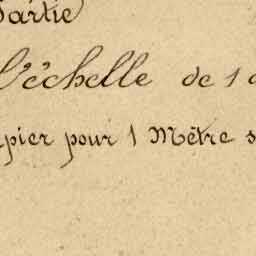 Partie
l'échelle de 1
pier pour 1 Mètre s